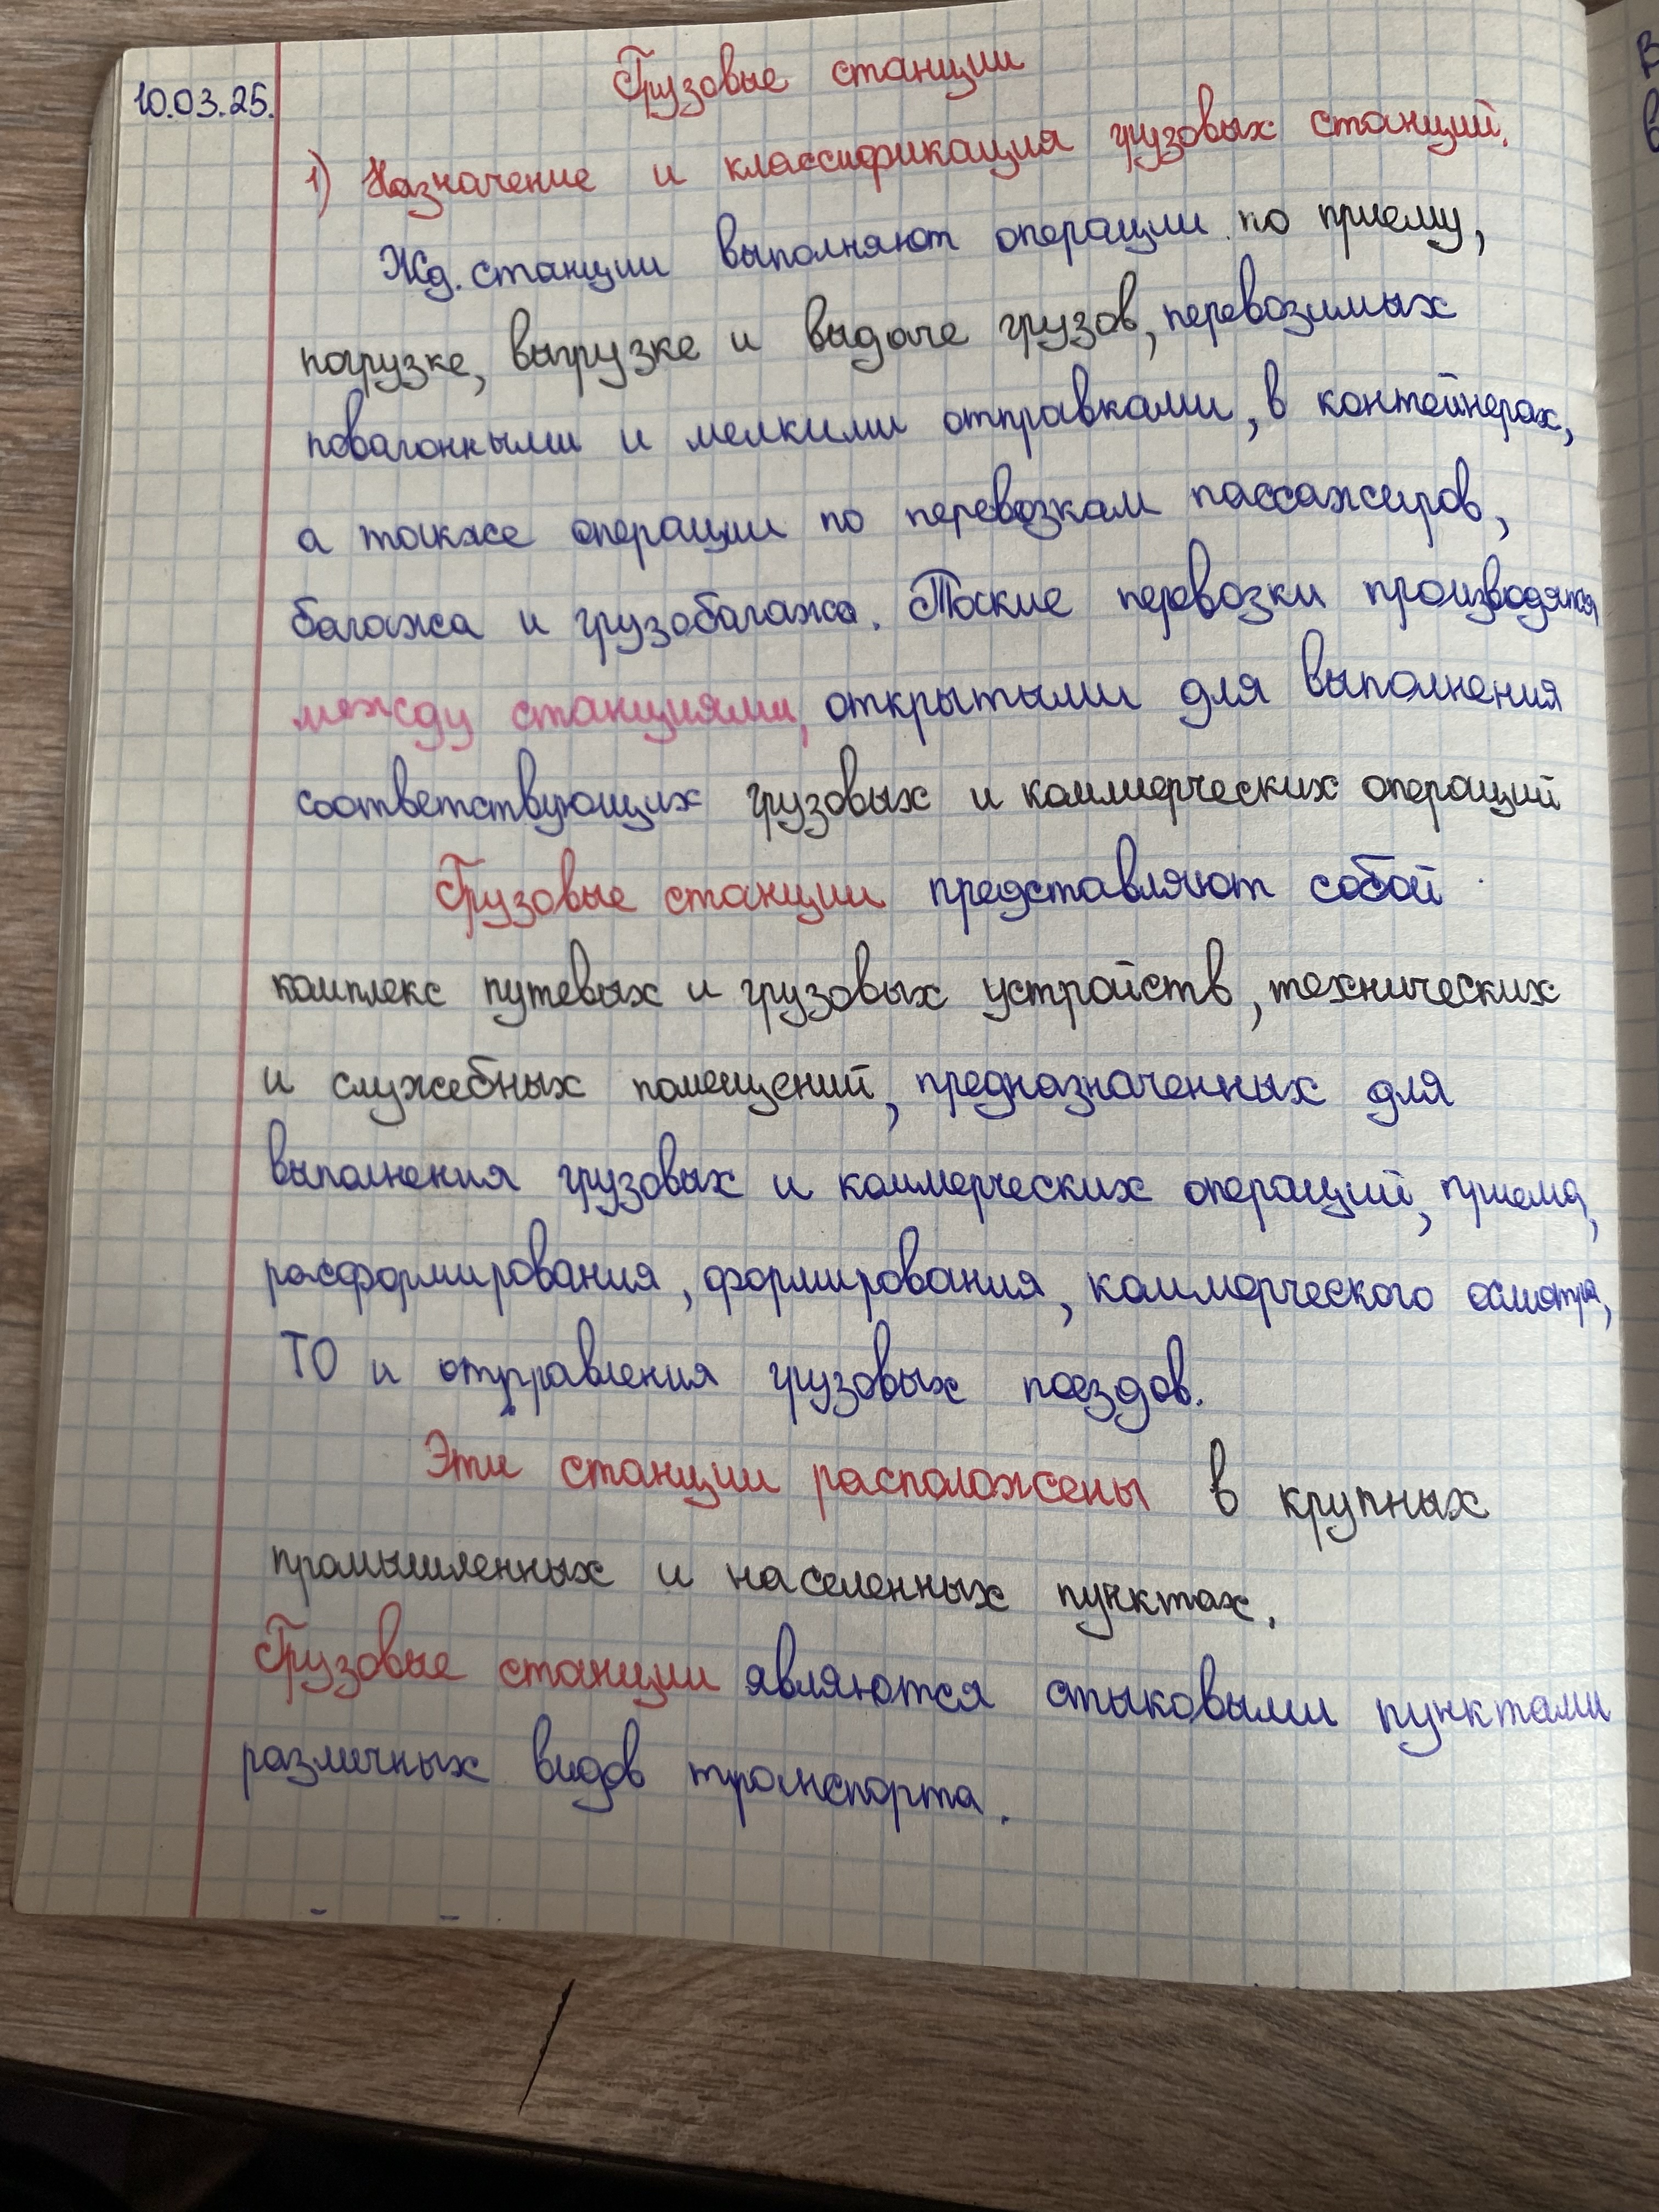 10.03.25.
Грузовые станции
1) Назначение и классификация грузовых станций.
Жд. станции выполняют операции по приему,
погрузке, выгрузке и выдаче грузов, перевозимых
повагонными и мелкими отправками, в контейнерах,
а также операции по перевозкам пассажиров,
багажа и грузобагажа. Такие перевозки производятся
между станциями, открытыми для выполнения
соответствующих грузовых и коммерческих операций
Грузовые станции представляют собой
комплекс путевых и грузовых устройств, технических
и служебных помещений, предназначенных для
выполнения грузовых и коммерческих операций, приема,
расформирования, формирования, коммерческого осмотра,
ТО и отправления грузовых поездов.
Эти станции расположены в крупных
промышленных и населенных пунктах.
Грузовые станции являются стыковыми пунктами
различных видов транспорта.